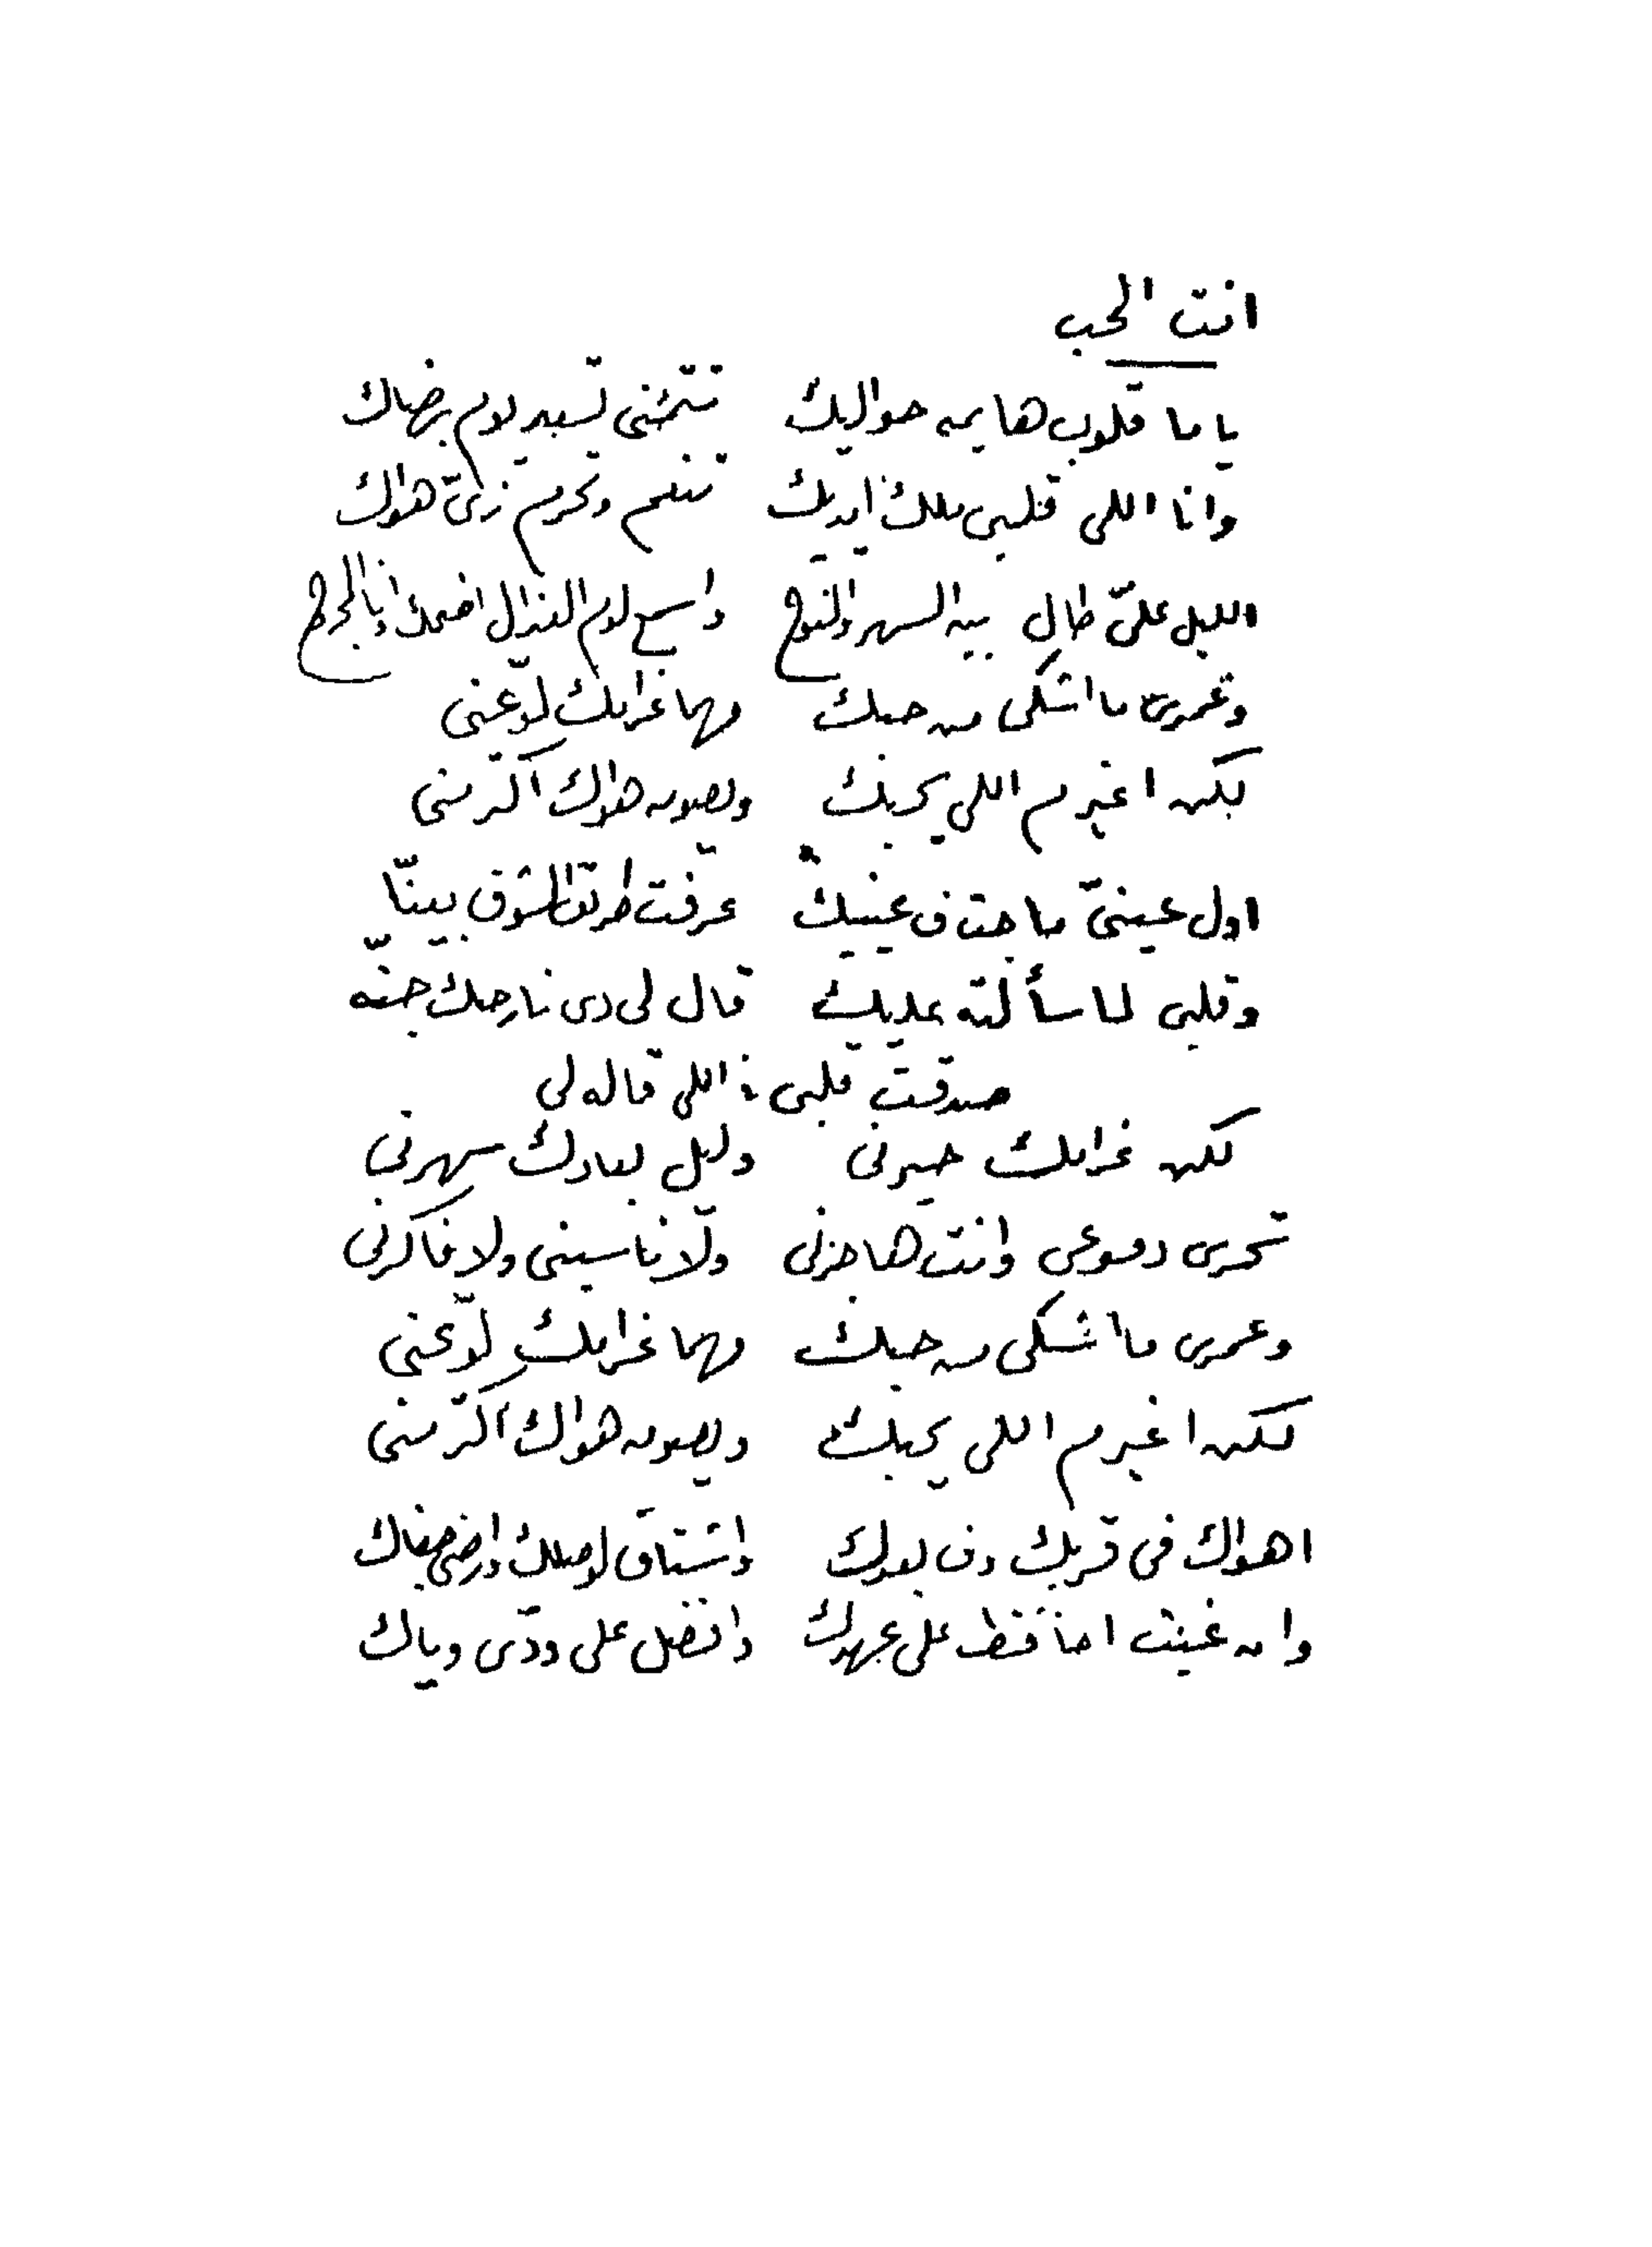 انت الحب
ياما قلوب هايمه حواليك تتمنى تسعد يوم برضاك
وانا اللى قلبى ملك ايديك تنعم وتحرم زىّ هواك
الليل علىّ طال بين السهر والنوح واسمع لوم العذال اضحك وانا المجروح
وعمرى ما اشكى من حبك مهما غرامك لوّعنى
لكن اغير م اللى يحبك ويصون هواك اكتر منى
اول عينىّ ما جت ف عينيك عرفت طريق الشوق بينّا
وقلبى لما سألته عليك قال لى دى نار حبك جنّه
صدقت قلبى ف اللى قاله لى
لكن غرامك حيرنى وليل بعادك سهرنى
تجرى دموعى وانت هاجرنى ولّا ناسينى ولا فاكرنى
وعمرى ما اشكى من حبك مهما غرامك لوّعنى
لكن اغير م اللى يحبك ويصون هواك اكتر منى
اهواك فى قربك وف بعدك واشتاق لوصلك وارضى جفاك
وان غبت احافظ على عهدك وافضل على ودّى وياك